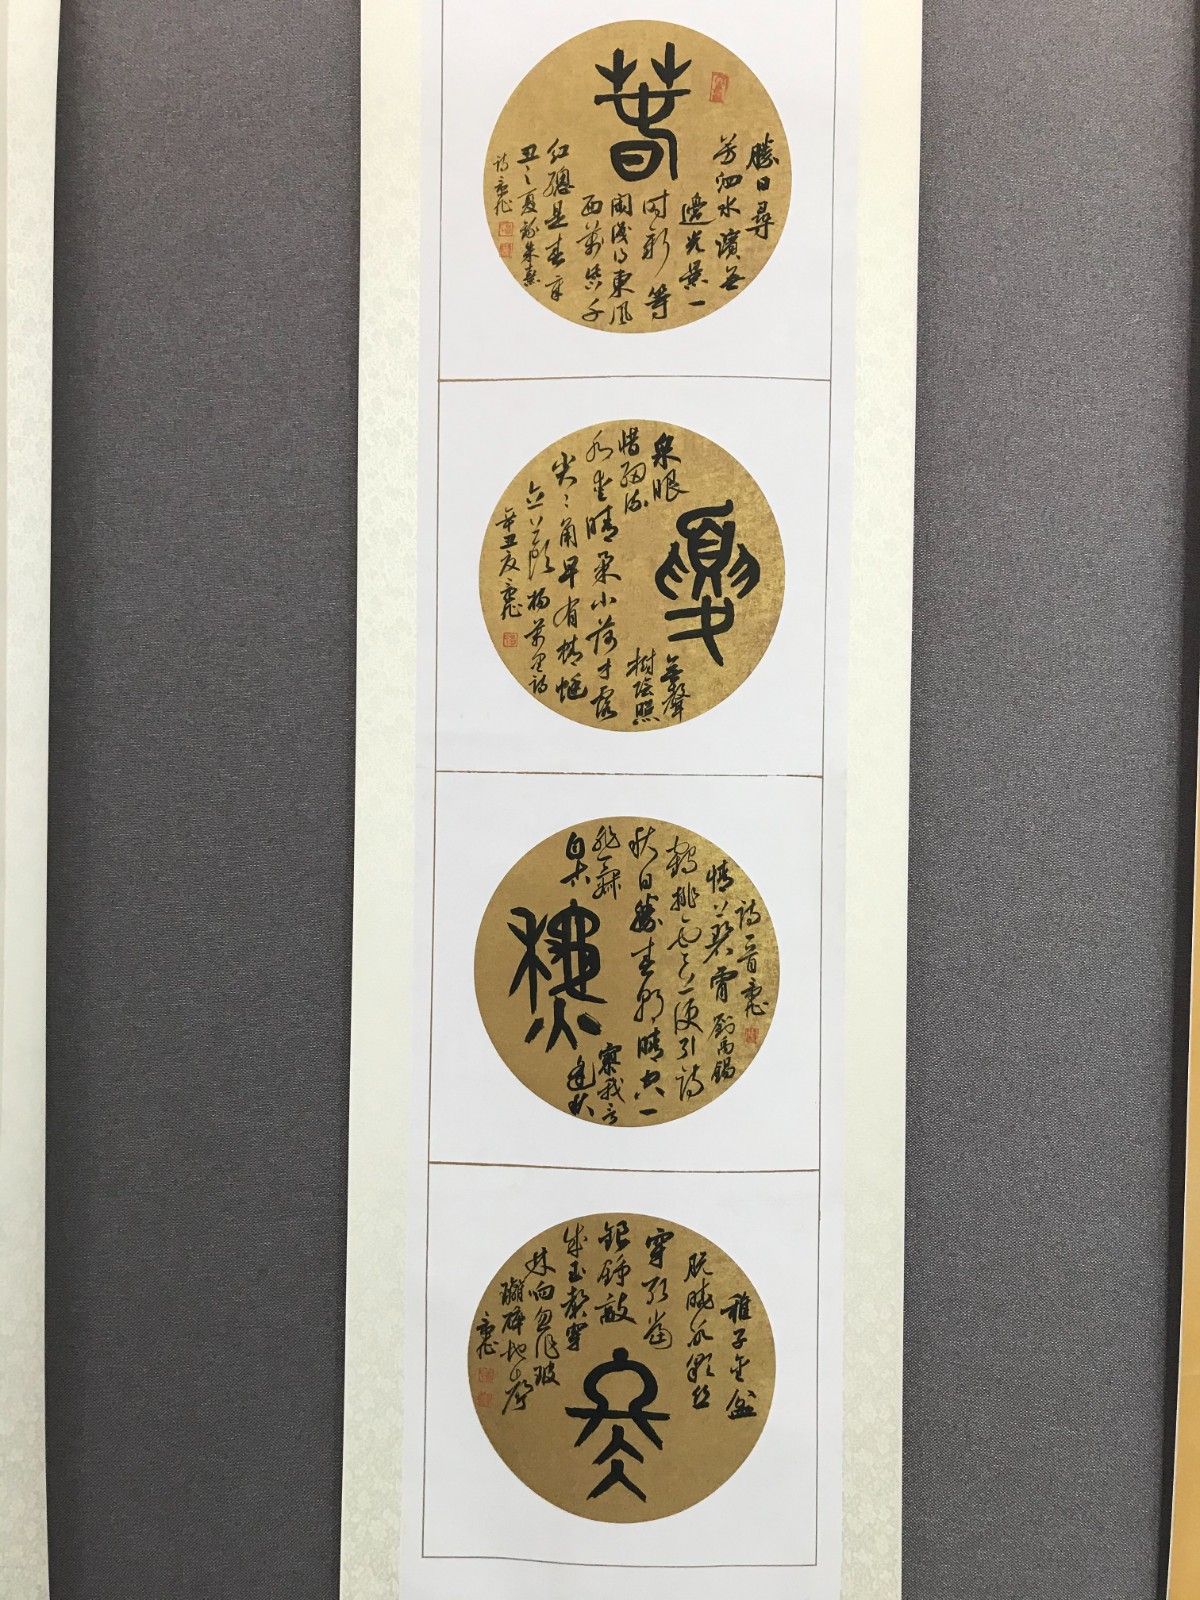 春
勝日尋
芳泗水濱無
邊光景一
时新 等
閑識得東風
面萬紫千
红總是春 辛
丑之夏録朱熹
詩
夏
泉眼
惜细流
無聲
樹陰照
水愛晴柔小荷才露
尖尖角早有蜻蜓
立上頭 楊萬里詩
辛丑夏
秋
自古
逢秋
悲
寂寥我言
秋日勝春朝晴空一
鶴排雲上便引詩
情
碧霄 劉禹錫
詩一首
冬
稚子金盆
脱曉冰彩丝
穿取當
银铮敲
成玉磬穿
林响忽作玻
瓈碎地声